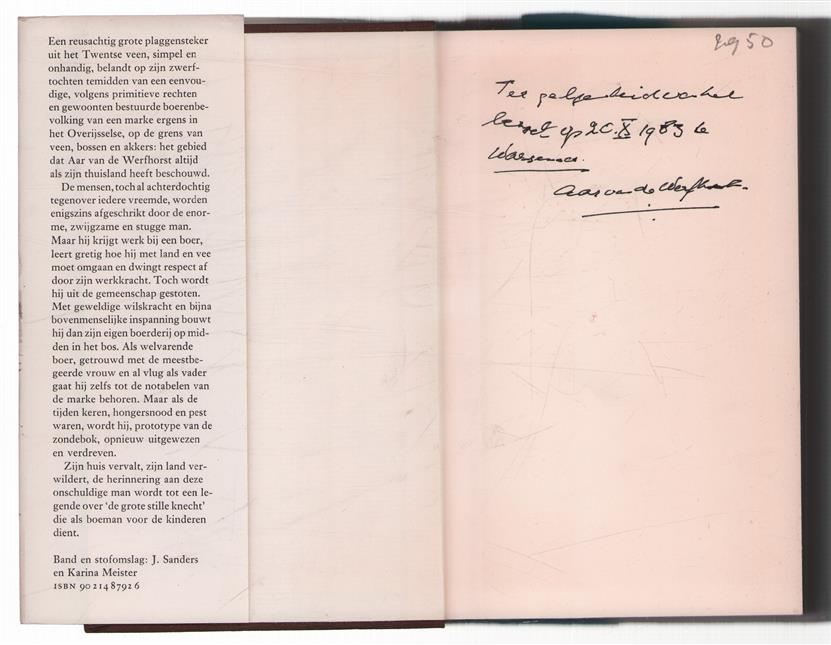 Een reusachtig grote plaggensteker
uit het Twentse veen, simpel en
onhandig, belandt op zijn zwerf-
tochten temidden van een eenvou-
dige, volgens primitieve rechten
en gewoonten bestuurde boerenbe-
volking van een marke ergens in
het Overijsselse, op de grens van
veen, bossen en akkers: het gebied
dat Aar van de Werfhorst altijd
als zijn thuisland heeft beschouwd.
De mensen, toch al achterdochtig
tegenover iedere vreemde, worden
enigszins afgeschrikt door de enor-
me, zwijgzame en stugge man.
Maar hij krijgt werk bij een boer,
leert gretig hoe hij met land en vee
moet omgaan en dwingt respect af
door zijn werkkracht. Toch wordt
hij uit de gemeenschap gestoten.
Met geweldige wilskracht en bijna
bovenmenselijke inspanning bouwt
hij dan zijn eigen boerderij op mid-
den in het bos. Als welvarende
boer, getrouwd met de meestbe-
geerde vrouw en al vlug als vader
gaat hij zelfs tot de notabelen van
de marke behoren. Maar als de
tijden keren, hongersnood en pest
waren, wordt hij, prototype van de
zondebok, opnieuw uitgewezen
en verdreven.
Zijn huis vervalt, zijn land ver-
wildert, de herinnering aan deze
onschuldige man wordt tot een le-
gende over 'de grote stille knecht'
die als boeman voor de kinderen
dient.
Band en stofomslag: J. Sanders
en Karina Meister
ISBN 90 214 8792 6
50
Ter gelegenheid van het
op 20 X 1983 te
Aar van de Werfhorst.